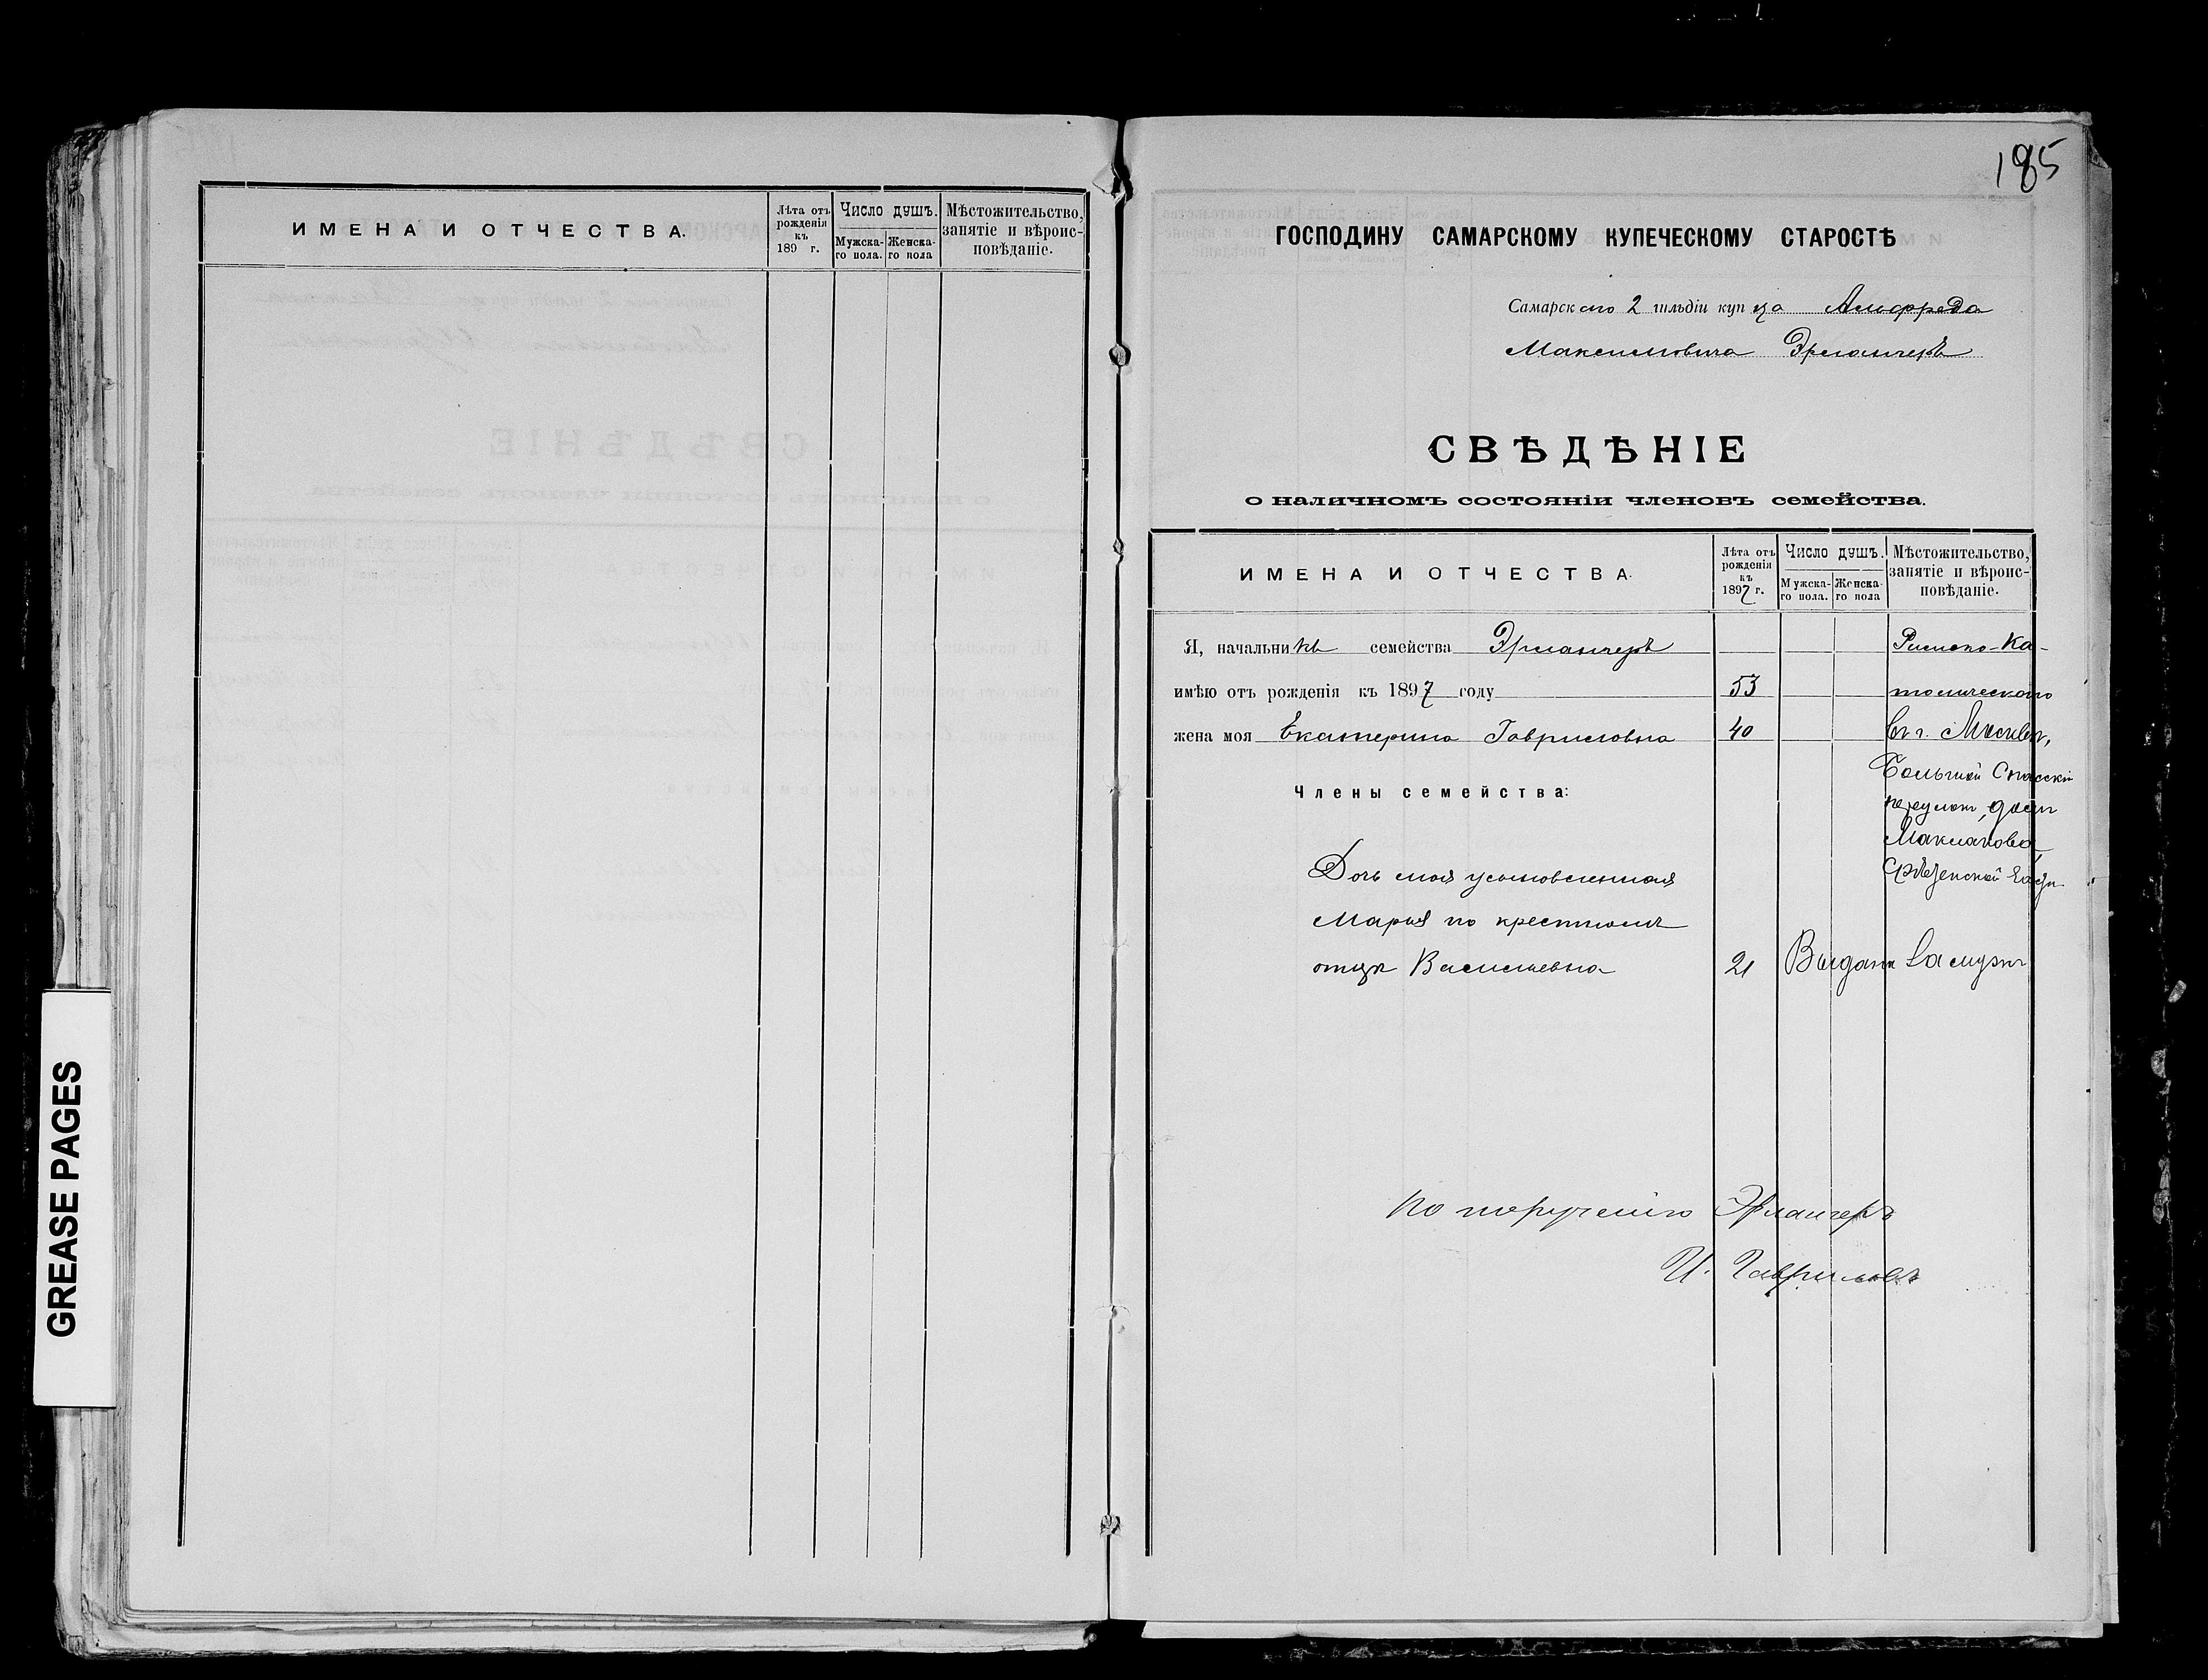 ИМЕНА И ОТЧЕСТВА.
Лѣта отъ рожденія къ 189 г.
Число душъ.
Мужска-го пола.
Женска-го пола
Мѣстожительство, занятіе и вѣроис-повѣданіе.
GREASE PAGES
185
ГОСПОДИНУ САМАРСКОМУ КУПЕЧЕСКОМУ СТАРОСТѢ
Самарскаго 2 гильдіи купца Альфреда
Максимовича Эрлангеръ
СВѢДѢНІЕ
о наличномъ состояніи членовъ семейства.
ИМЕНА И ОТЧЕСТВА.
Лѣта отъ рожденія къ 1897 г.
Число душъ.
Мужска-го пола.
Женска-го пола
Мѣстожительство, занятіе и вѣроис-повѣданіе.
Я, начальникъ семейства Эрлангеръ Римско-Ка-
имѣю отъ рожденія къ 1897 году 53 толическаго
жена моя Екатерина Гавриловна 40 Въ г. Москвѣ,
Большой Спасскій
Члены семейства:
переулокъ, домъ
Маклакова
Срѣтенской части
Дочь моя усыновленная
Марья по крестному
отцу Васильевна 21 Выдана замужъ
По порученію Эрлангеръ
И. Гавриловъ